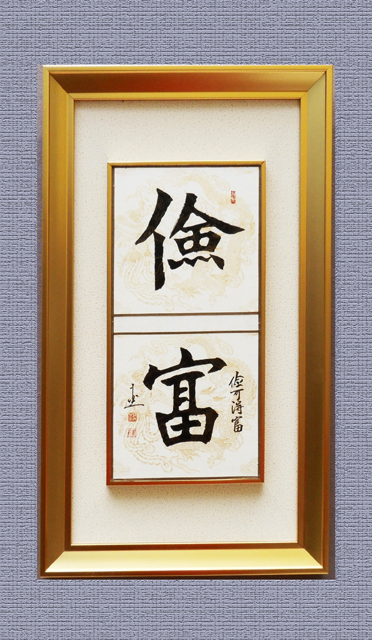 儉
富
儉可得富